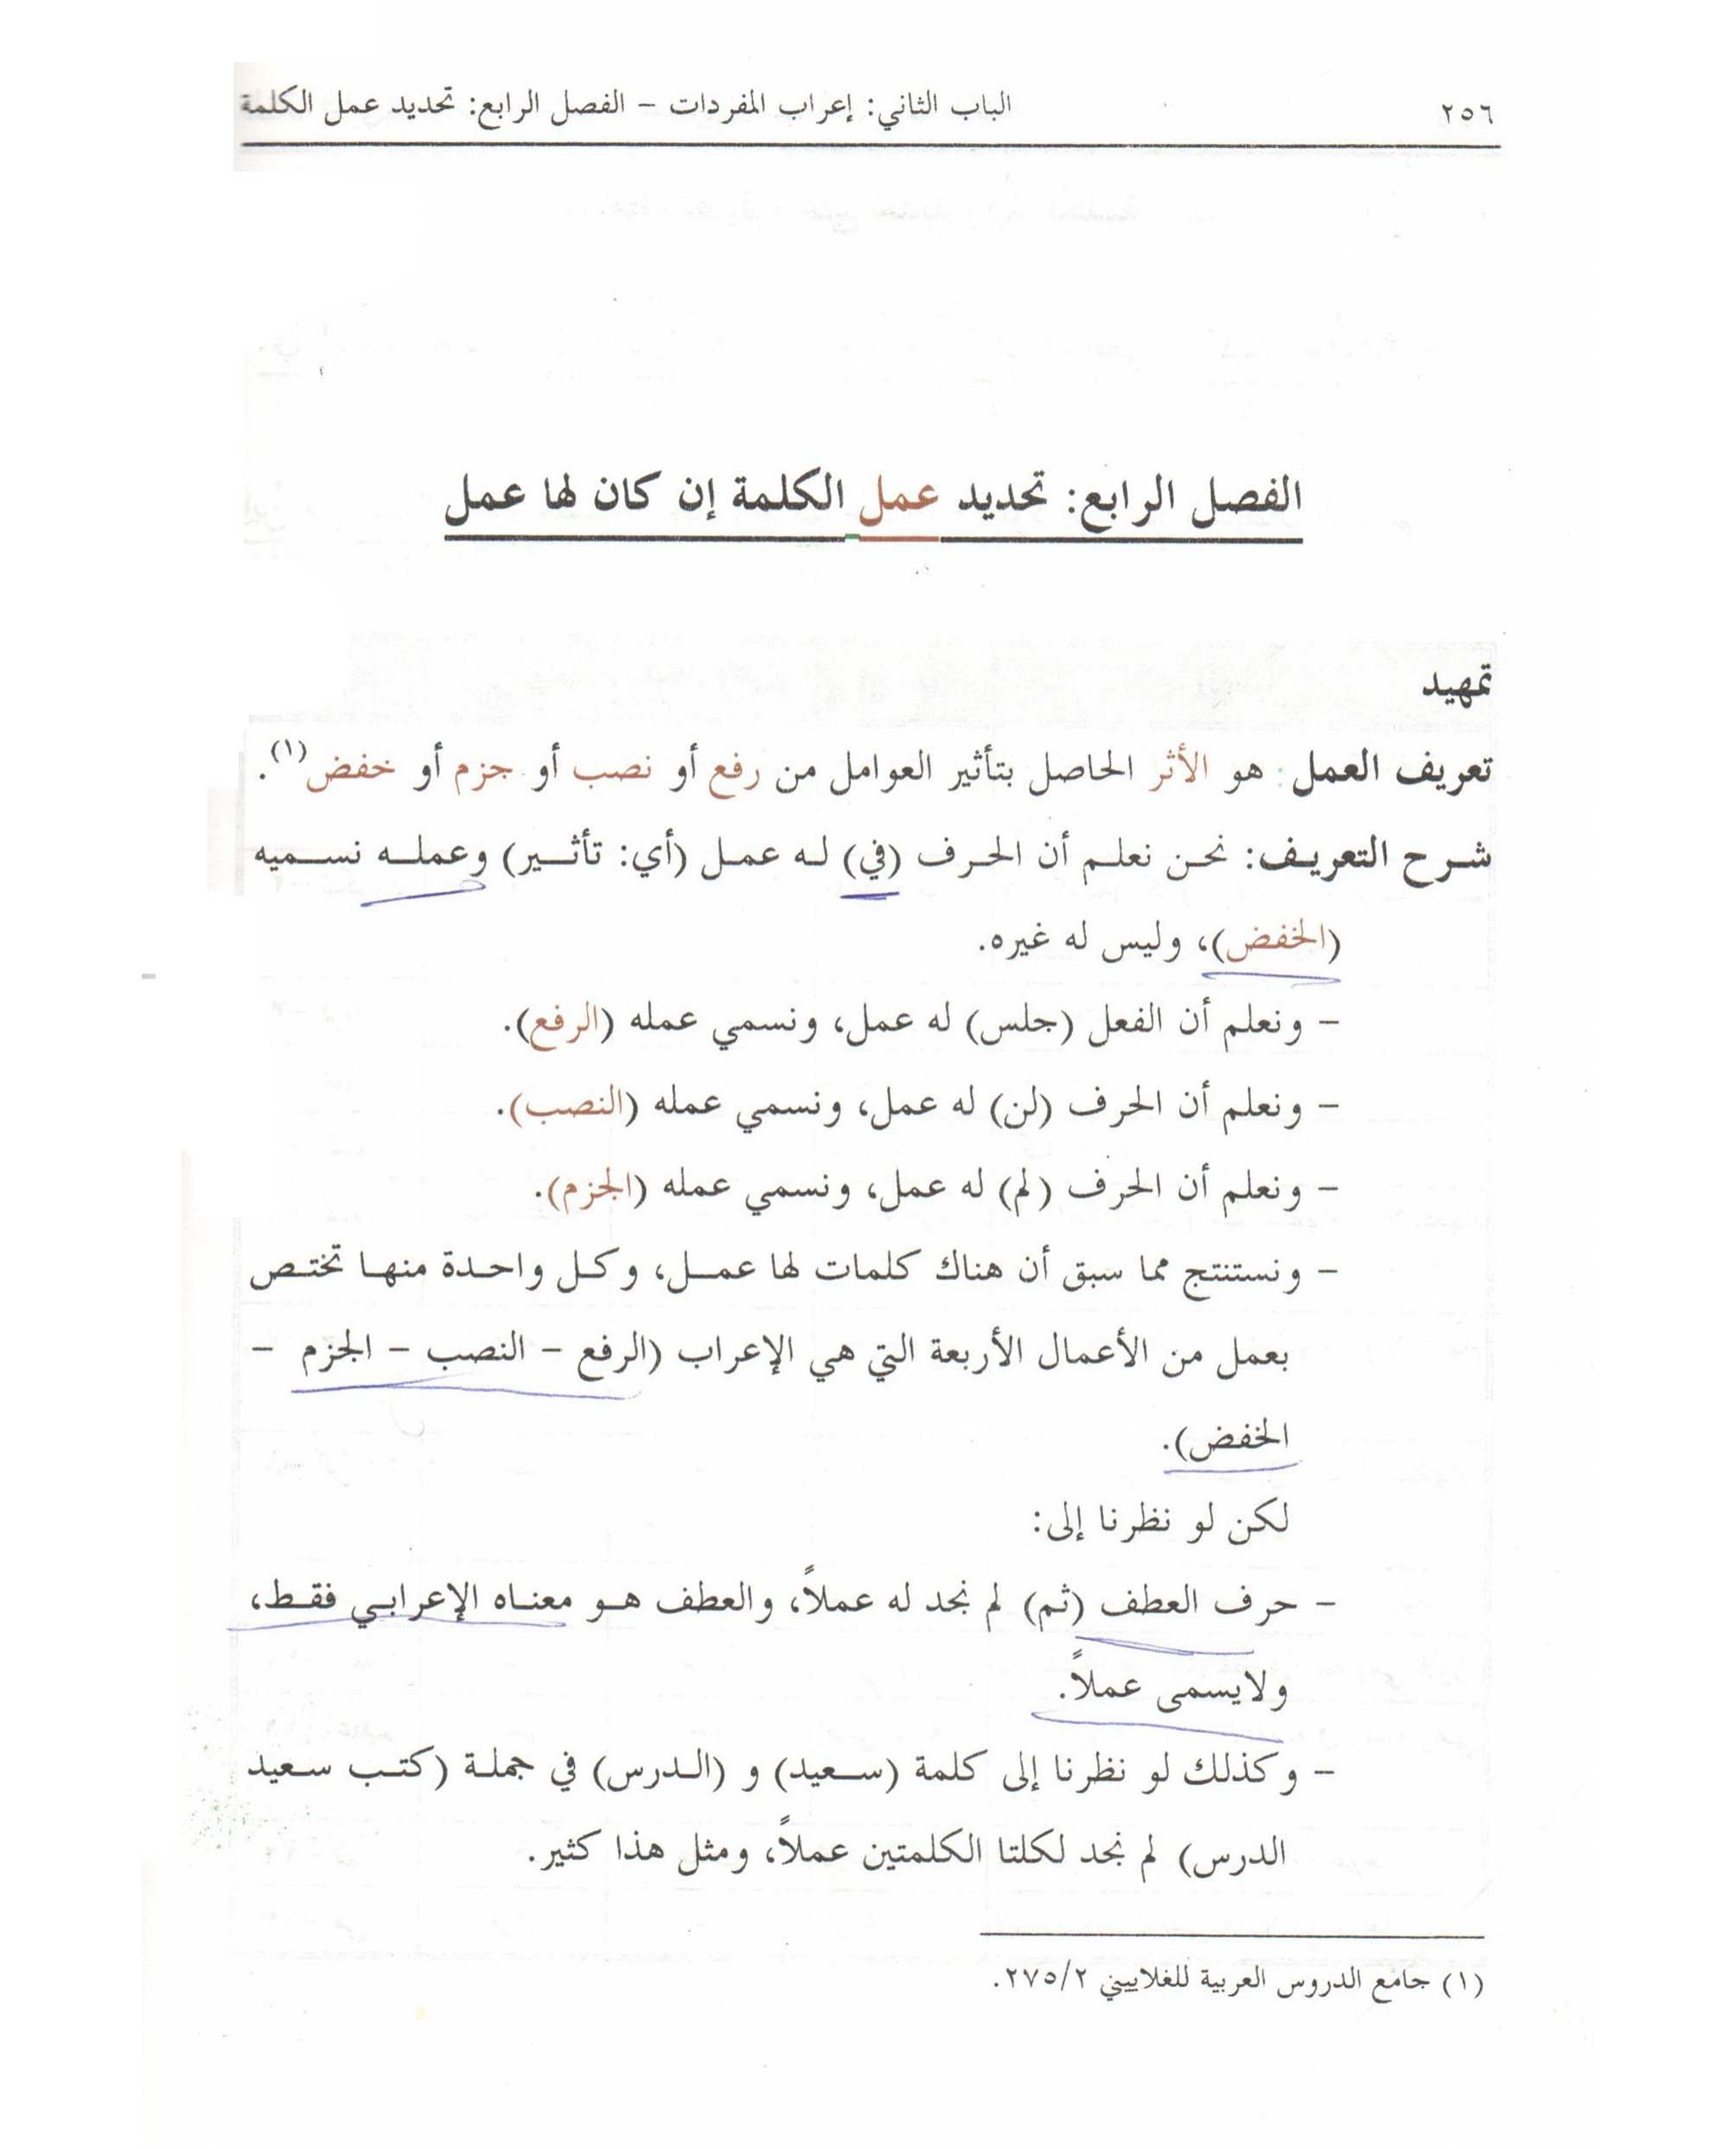 ٢٥٦
الباب الثاني: إعراب المفردات – الفصل الرابع: تحديد عمل الكلمة
الفصل الرابع: تحديد عمل الكلمة إن كان لها عمل
تمهيد
تعريف العمل: هو الأثر الحاصل بتأثير العوامل من رفع أو نصب أو جزم أو خفض(١).
شرح التعريف: نحن نعلم أن الحرف (في) له عمل (أي: تأثير) وعمله نسميه
(الخفض)، وليس له غيره.
– ونعلم أن الفعل (جلس) له عمل، ونسمي عمله (الرفع).
– ونعلم أن الحرف (لن) له عمل، ونسمي عمله (النصب).
– ونعلم أن الحرف (لم) له عمل، ونسمي عمله (الجزم).
– ونستنتج مما سبق أن هناك كلمات لها عمل، وكل واحدة منها تختص
بعمل من الأعمال الأربعة التي هي الإعراب (الرفع – النصب – الجزم –
الخفض).
لكن لو نظرنا إلى:
– حرف العطف (ثم) لم نجد له عملاً، والعطف هو معناه الإعرابي فقط،
ولايسمى عملاً.
– وكذلك لو نظرنا إلى كلمة (سعيد) و (الدرس) في جملة (كتب سعيد
الدرس) لم نجد لكلتا الكلمتين عملاً، ومثل هذا كثير.
(١) جامع الدروس العربية للغلاييني ٢/٢٧٥.